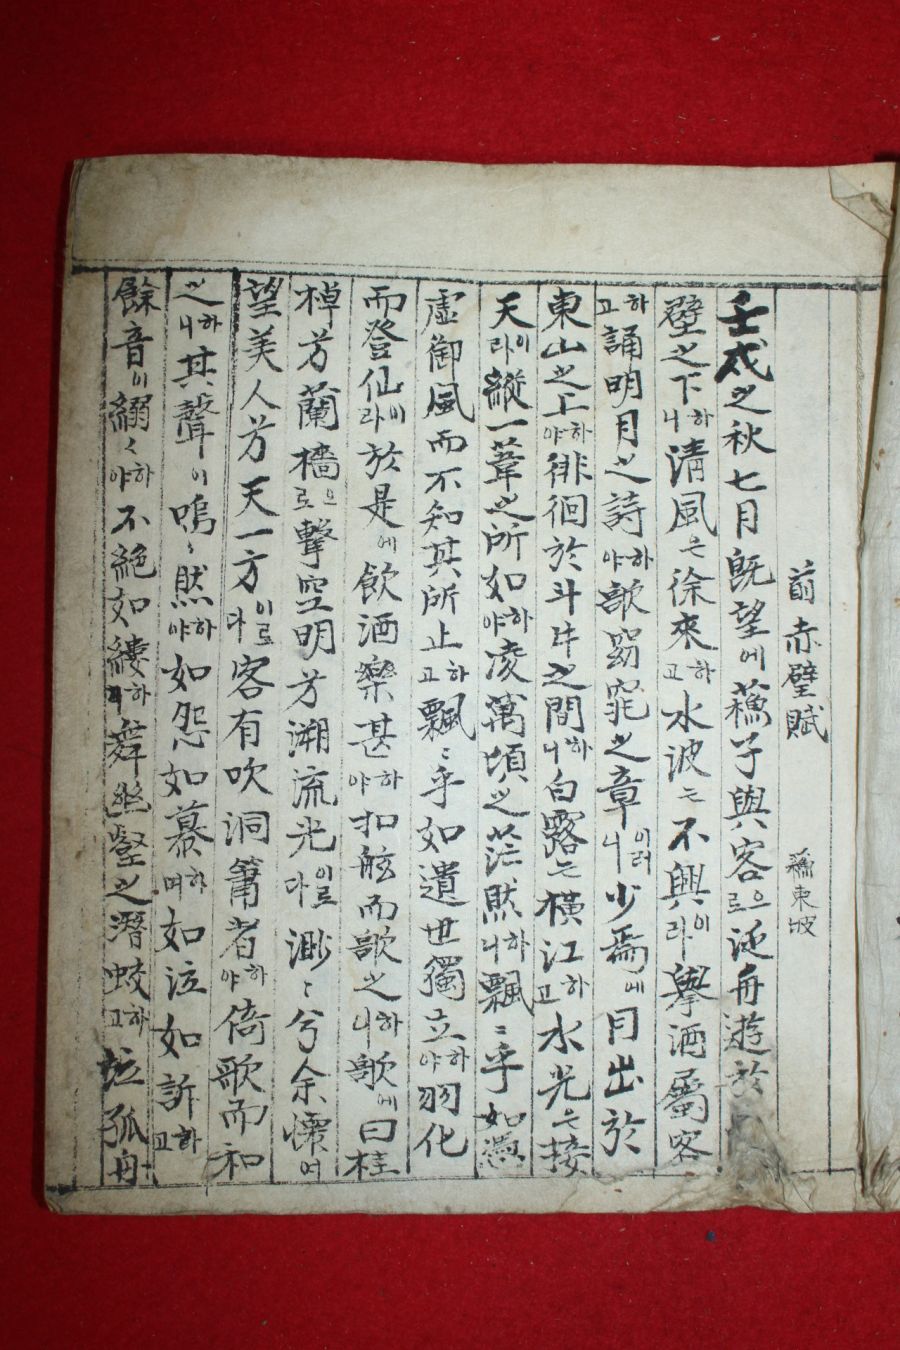 前赤壁賦 蘓東坡
壬戌之秋七月旣望에蘓子與客으로泛舟遊於
壁之下하니淸風은徐來하고水波는不興이라擧酒屬客
하고誦明月之詩하야歌窈窕之章이러니少焉에月出於
東山之上하야徘徊於斗牛之間하니白露는橫江하고水光은接
天이라縱一葦之所如하야凌萬頃之茫然하니飄〻乎如憑
虛御風而不知其所止하고飄〻乎如遺世獨立하야羽化
而登仙이라於是에飮酒樂甚하야扣舷而歌之하니歌에曰桂
棹兮蘭槳으로擊空明兮溯流光이로다渺〻兮余懷여
望美人兮天一方이로다客有吹洞簫者하야倚歌而和
之하니其聲이嗚〻然하야如怨如慕하며如泣如訴하고
餘音이嫋〻하야不絶如縷하니舞幽壑之潛蛟하고泣孤舟